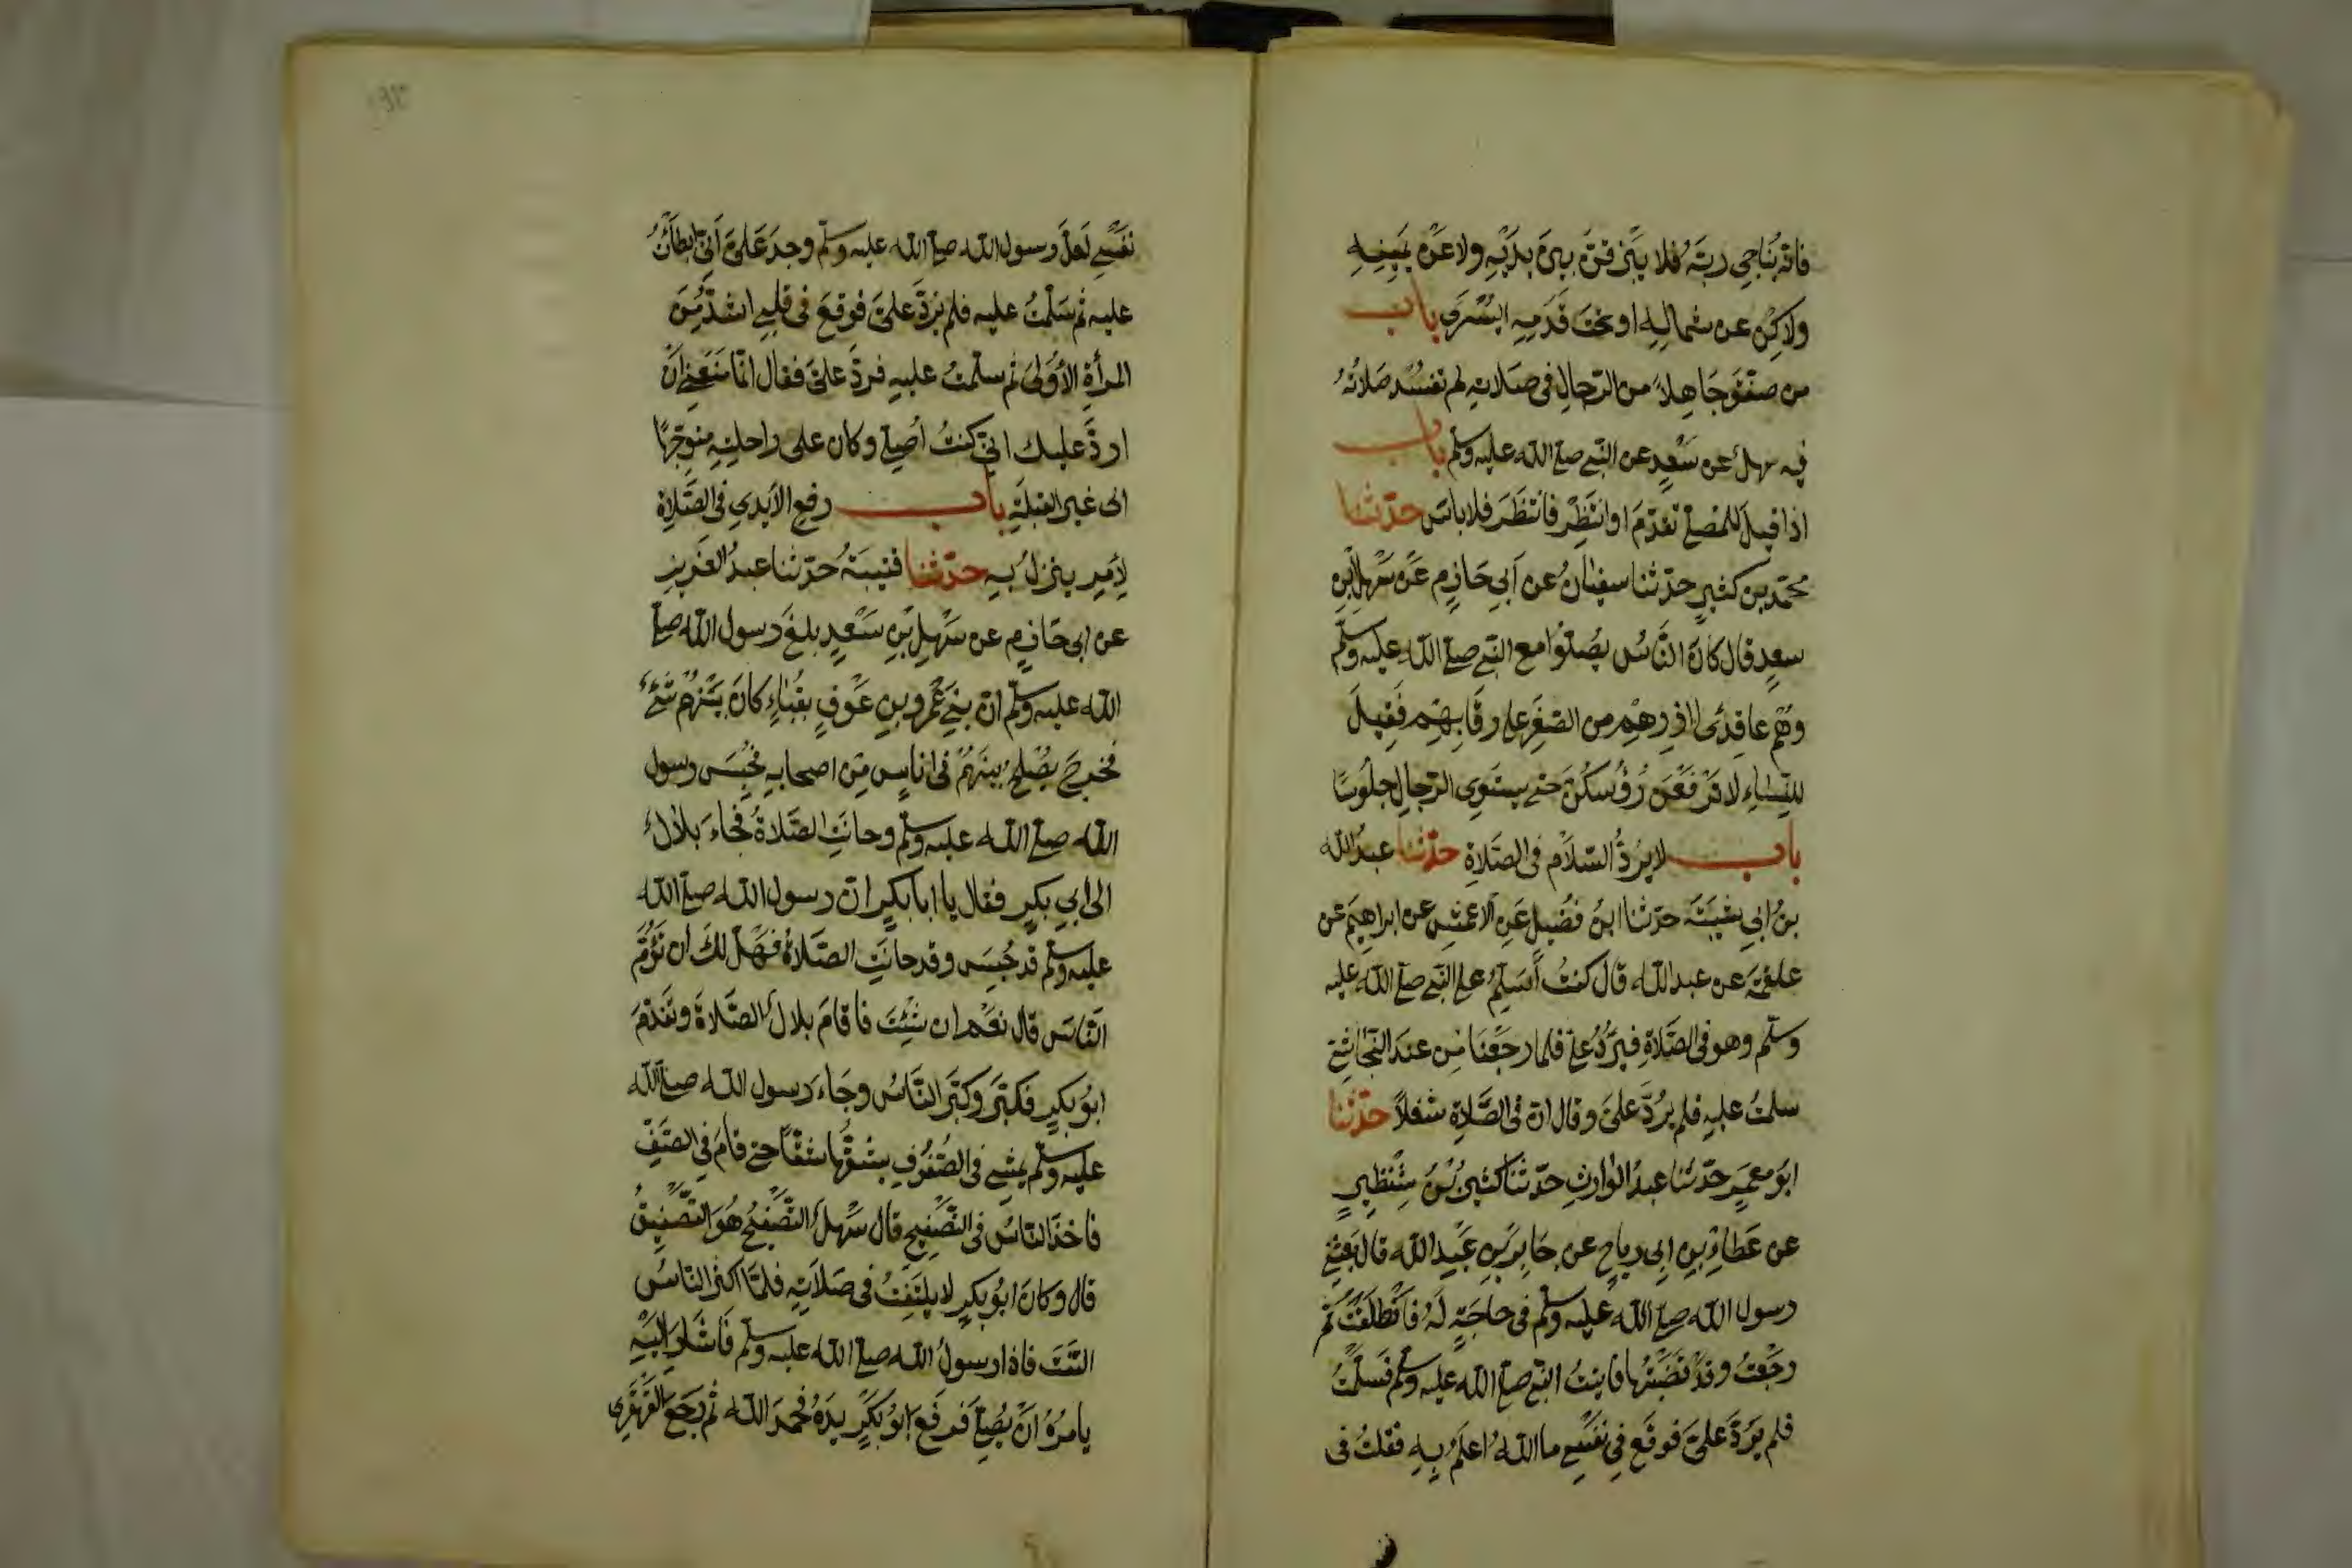 فانه يُنَاجِي ربَّهُ فلا يَبْزقنّ بين يَدَيْهِ ولا عَنْ يمينِهِ
ولكِن عن شمالِهِ او تحتَ قَدَمِهِ اليُسْرَى باب
من صفّقَ جَاهِلاً من الرّجالِ في صَلاتِهِ لم تفسُد صَلاتُهُ
فيه سهلٌ عن سَعْدٍ عن النّبي صلى الله عليه وسلم باب
اذا قيلَ للمُصلي تَقدّمَ او انتَظِرْ فانتظَرَ فلا باسَ حدّثنا
محمّد بن كثيرٍ حدّثنا سفيٰانُ عن أبي حَازمٍ عَنْ سَهْلِ بنِ
سعدٍ قال كانَ النّاسُ يُصَلّوا مع النّبي صلى الله عليه وسلم
وهُمْ عاقِدُى اازرِهِمْ من الصّغَر على رقَابِهِم فَقِيلَ
للنّسٰاءِ لا تَرْفَعْنَ رُؤُسكُنَّ حتى يستَوِى الرّجالِ جلُوسًا
باب لا يردُّ السّلاَم فى الصّلاةِ حدّثنا عبدُ الله
بنُ ابي شيبَةَ حدّثنا ابنُ فضَيلٍ عَنِ الاعمشِ عن ابراهيمَ عن
علقمَة عن عبد الله قال كنتُ أُسَلِّمُ على النّبي صلى الله عليه
وسلّم وهو فى الصّلاةِ فيَردُّ علىّ فلما رجَعْنَا مِن عندَ النّجٰاشِيّ
سلمتُ عليهِ فلم يرُدَّ علىَّ وقال انّ فى الصّلاةِ شغلاً حدّثنا
ابو معمَرٍ حدّثنا عبدُ الوٰارثِ حدّثنا كثيرُ بنُ شِنْظِيرٍ
عن عَطاءِ بنِ ابِى رباحٍ عن جَابِرِ بنِ عَبدِ الله قال بعَثَنى
رسول الله صلى الله عليه وسلم فى حاجَةٍ لَهُ فانْطلَقْتُ ثم
رجَعْتُ وقدْ قَضَيْتُها فاتيتُ النّبي صلى الله عليه وسلم فَسلّمْتُ
فلم يَرُدَّ علىّ فوقَع فِي نفْسِي ما اللهُ اعلَمُ بِهِ فقلتُ فى
نفْسِي لَعلَّ رسول الله صلى الله عليه وسلّم وجدَ عَلىَّ أنِّى ابطأتُ
عليه ثم سَلّمتُ عليه فلم يَرُدَّ علىَّ فوقعَ فى قلبِي اشدُّ مِنَ
المرأةِ الأُولىٰ ثم سلّمتُ عليهِ فردَّ علىّ فقال انّما مَنَعَنِى اَنْ
اردَّ عليك انّى كنتُ اُصَلى وكان على راحلتِهِ متوجّهًا
الى غير القبلَةِ باب رفع الأيدي فى الصّلاةِ
لِأمرٍ ينزلُ بِهِ حدّثنا قتيبَةُ حدّثنا عبدُ العَزيزِ
عن ابى حَازمٍ عن سَهْلِ بْنِ سَعْدٍ بلغَ رسول الله صلى
الله عليه وسلّم انّ بني عَمْرِو بنِ عَوْفٍ بقُباءٍ كانَ بَيْنَهُم شَئٌ
فخرجَ يُصْلحُ بينَهُمْ فى اناسٍ مِن اصحابِهِ فحُبِسَ رسول
الله صلى الله عليه وسلّم وحانَتِ الصّلاةُ فجَاءَ بلالٌ
الى ابي بكرٍ فقال يا ابا بكرٍ انّ رسول الله صلى الله
عليه وسلّم قد حُبِسَ وقد حانَتِ الصّلاةُ فهَلْ لكَ ان تَؤُمَّ
النّاسَ قال نعَم ان شِئتَ فاقامَ بلالٌ الصّلاةَ وتقدّمَ
ابوُ بكرٍ فكبّرَ وكبّرَ النّاسُ وجَاءَ رسول الله صلى الله
عليه وسلّم يمشِي فى الصّفُوفِ يشقُّها شقًّا حتى قامَ فِي الصّفِّ
فاخذ النّاسُ فى التّصْفِيحِ قال سَهلٌ التّصْفيحُ هُوَ التّصْفيقُ
قال وكانَ ابوُ بكرٍ لا يلتَفِتُ فى صَلاَتِهِ فلمّا اكثرَ النّاسُ
التفتَ فاذا رسولُ الله صلى الله عليه وسلم فَاشارَ اليْهِ
يأمرُهُ انْ يُصَلىَ فرفَعَ ابوُ بَكرٍ يدَهُ فحمدَ الله ثم رجَعَ القَهْقرٰى